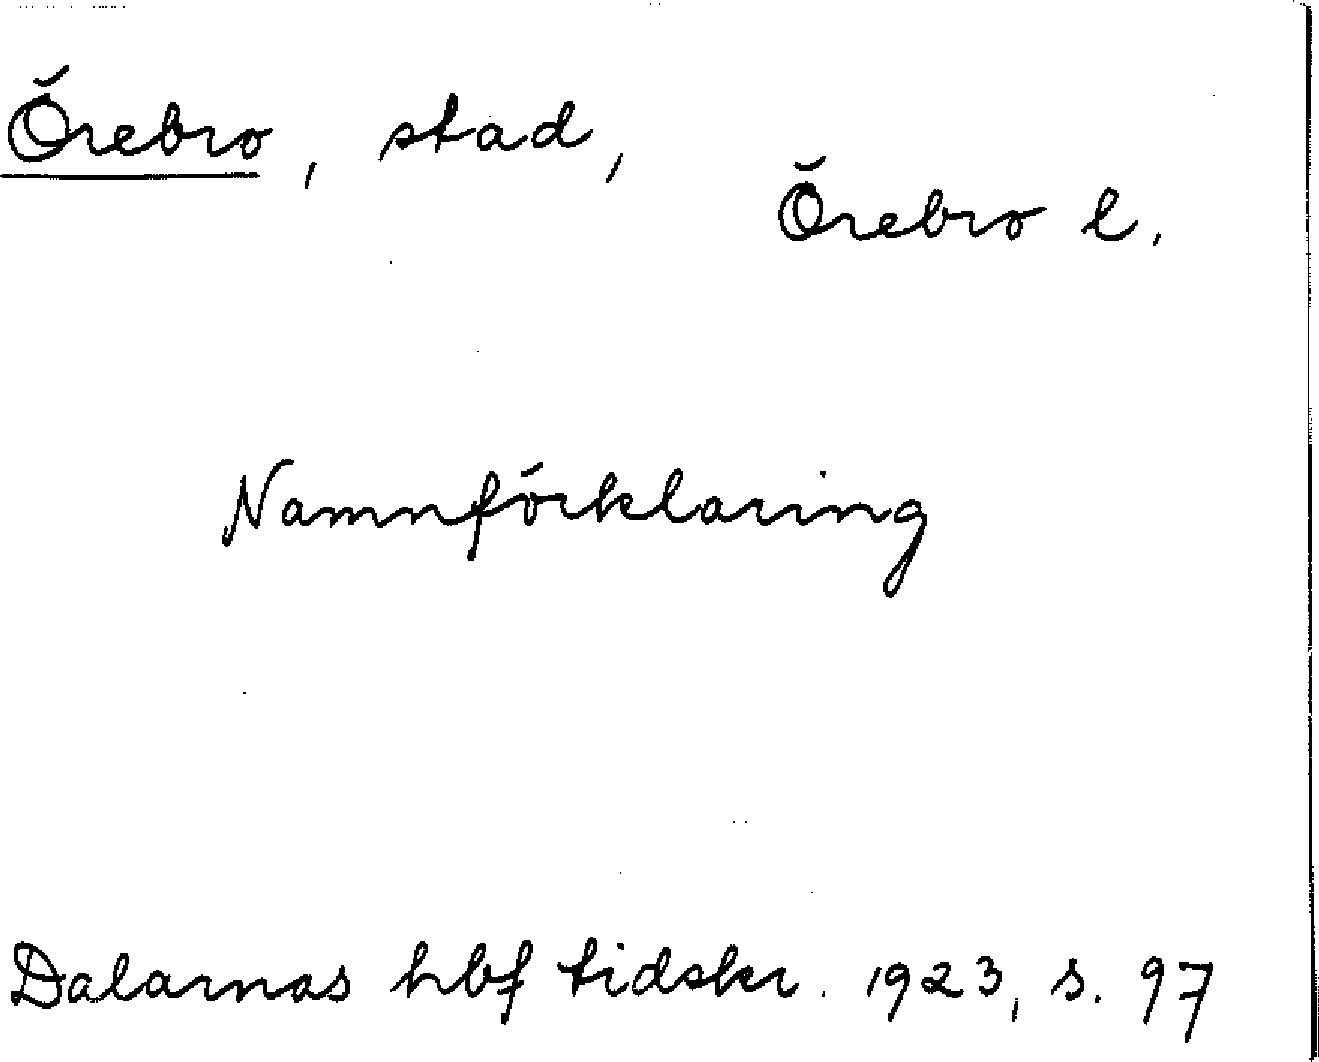 Örebro, stad,
Örebro l.
Namnförklaring
Dalarnas hbf tidskr. 1923, s. 97